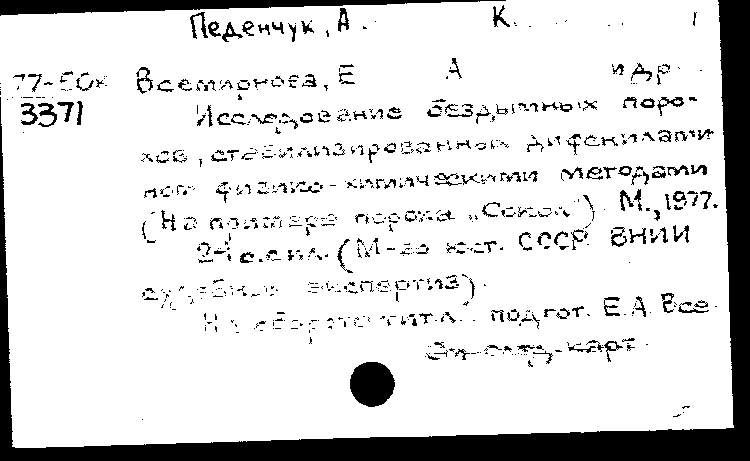 Педенчук, А. К.
77-50к Всемирнова, Е А и др.
3371 Исследование бездымных поро-
хов, стабилизированных дифениламином
физико-химическими методами
(На примере пороха „Сокол"). М., 1977.
24 с. с ил. (М-во юст. СССР. ВНИИ
судебных экспертиз).
На обороте тит. л. подгот. Е.А. Все
карт.